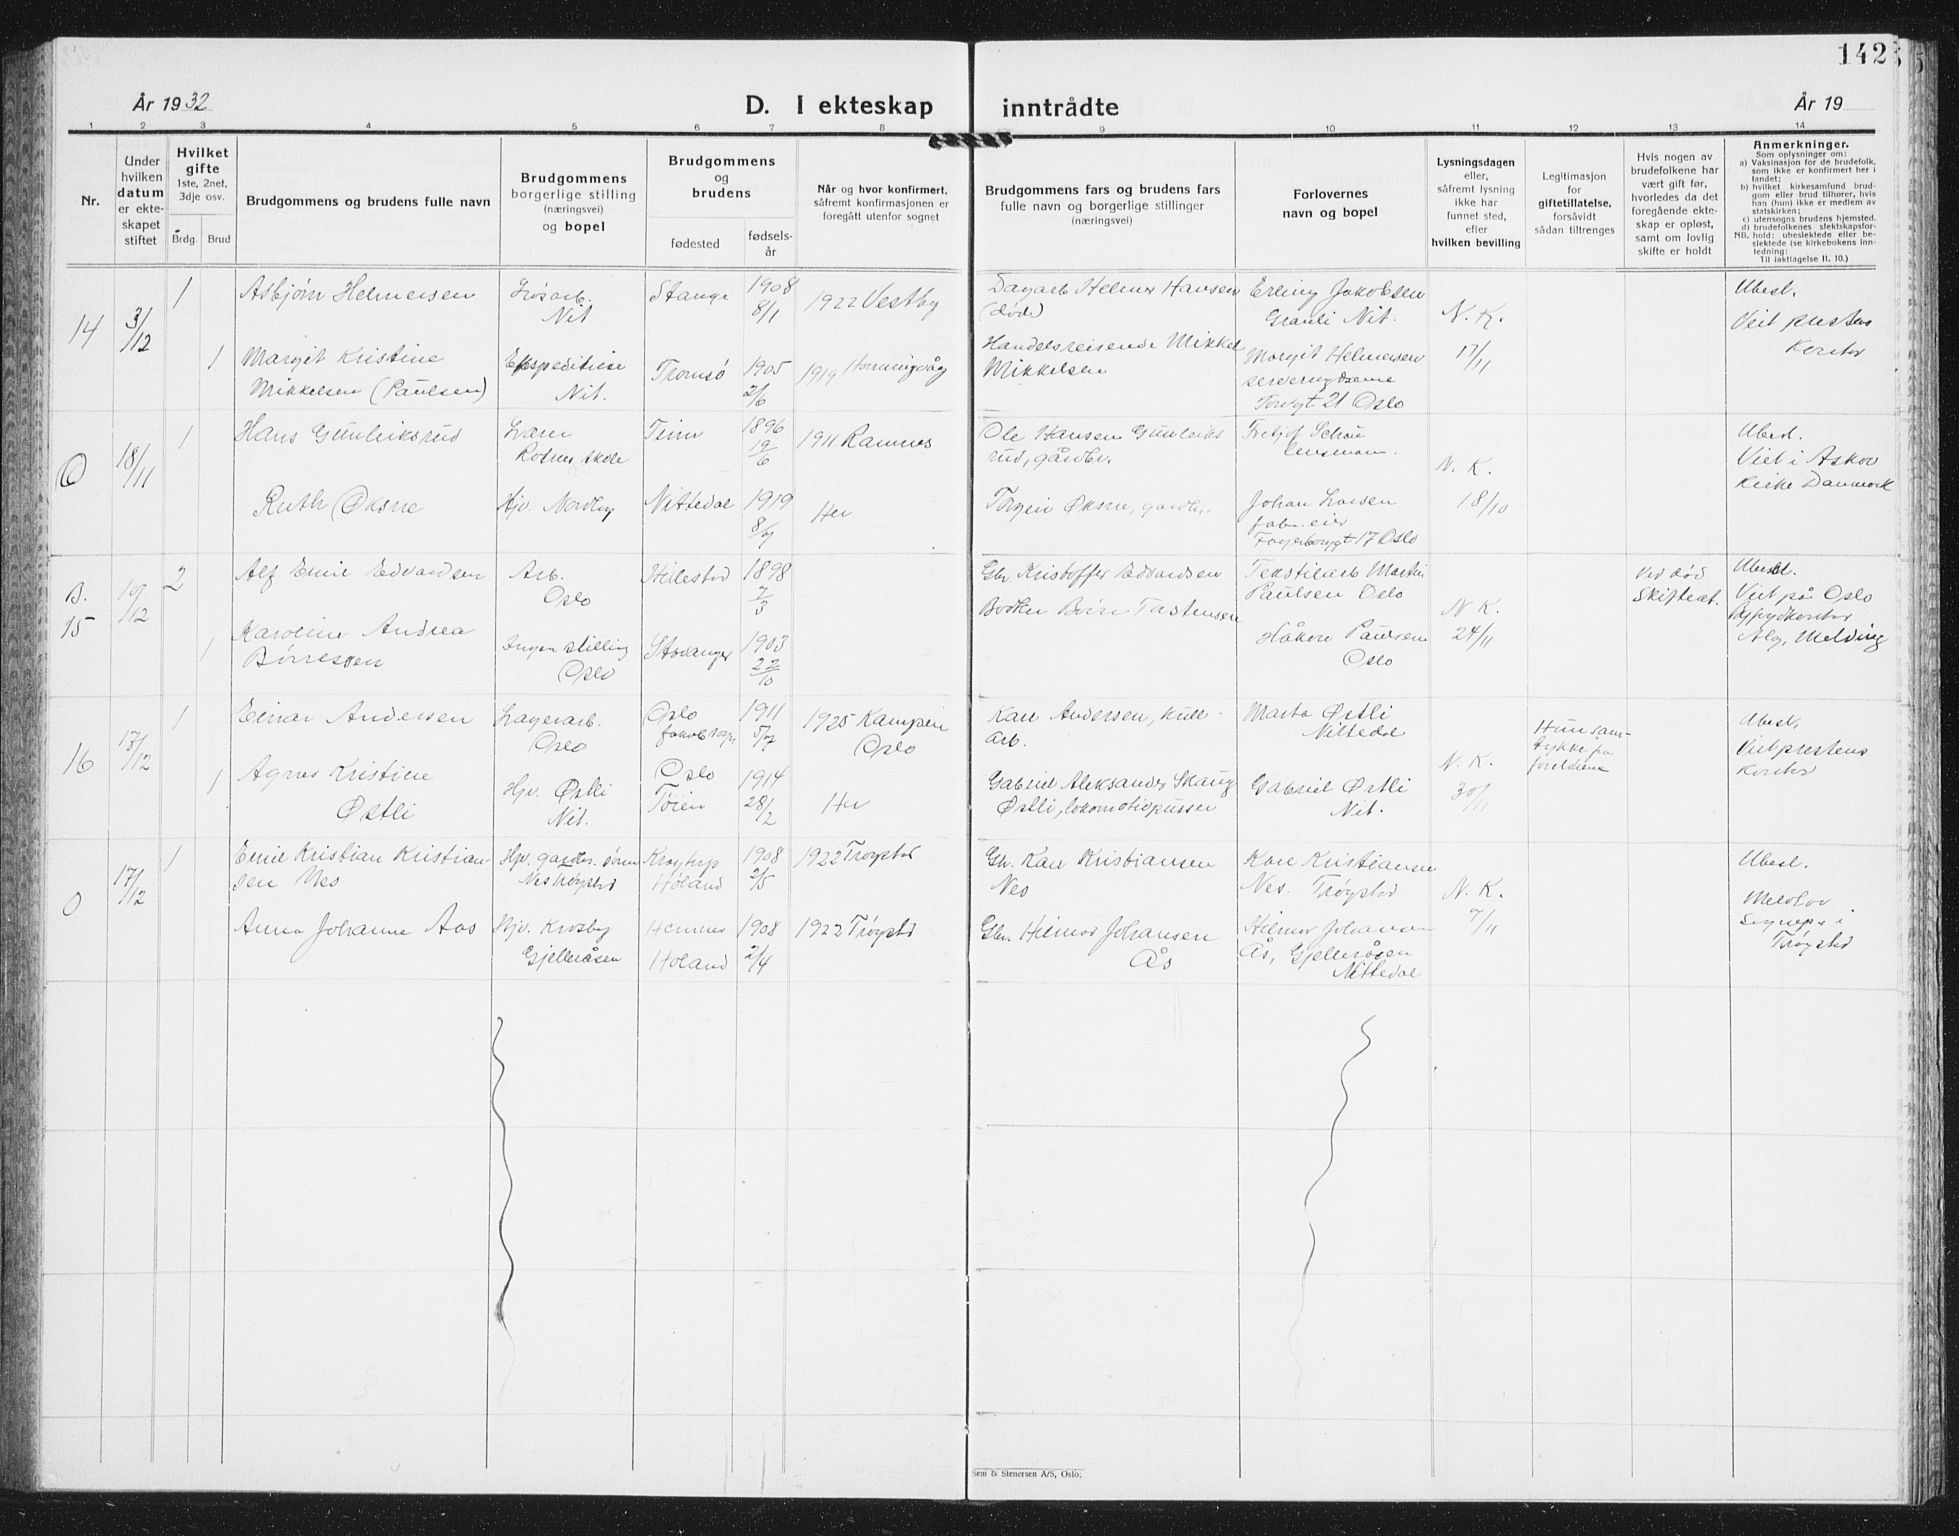 142
År 1932
D. I ekteskap inntrådte
År 19
1 2 3 4 5 6 7 8 9 10 11 12 13 14
Nr.
Under
hvilken
datum
er ekte-
skapet
stiftet
Hvilket
gifte
1ste, 2net,
3dje osv.
Brdg. Brud
Brudgommens og brudens fulle navn
Brudgommens
borgerlige stilling
(næringsvei)
og bopel
Brudgommens
og
brudens
fødested
fødsels-
år
Når og hvor konfirmert,
såfremt konfirmasjonen er
foregått utenfor sognet
Brudgommens fars og brudens fars
fulle navn og borgerlige stillinger
(næringsvei)
Forlovernes
navn og bopel
Lysningsdagen
eller,
såfremt lysning
ikke har
funnet sted,
efter
hvilken bevilling
Legitimasjon
for
giftetillatelse,
forsåvidt
sådan tiltrenges
Hvis nogen av
brudefolkene har
vært gift før,
hvorledes da det
foregående ekte-
skap er opløst,
samt om lovlig
skifte er holdt
Anmerkninger.
Som oplysninger om:
a) Vaksinasjon for de brudefolk,
som ikke er konfirmert her i
landet;
b) hvilket kirkesamfund brud-
gom eller brud tilhører, hvis
han (hun) ikke er medlem av
statskirken;
c) utensogns brudens hjemsted.
d) brudefolkenes slektskapsfor-
NB. hold: ubeslektede eller be-
slektede (se kirkebokens inn-
ledning:
Til iakttagelse II. 10.)
14
3/12
1
Asbjørn Helmersen
Nit
Stange
1908
8/1
1922 Vestby
Dagarb Helmer Hansen
(død)
Erling Jakobsen
Grauli Nit.
N. K.
17/11
Ubesl.
Viet prestens
kontor
1
Margit Kristine
Mikkelsen (Paulsen)
Ekspeditrise
Nit.
Tromsø
1905
2/6
1919 Honningvåg
Handelsreisende Mikkel
Mikkelsen
Margit Helmersen
Torvgt 21 Oslo
O
18/11
1
Hans Gunleiksrud
Lærer
Rotnes skole
Tinn
1896
19/6
1911 Ramnes
Ole Hansen Gunleiks
rud, gårdbr.
Fritjof Schou
lensmann.
N. K.
18/10
Ubesl.
Viet i Askov
Kirke Danmark
Ruth Øksne
Hjv. Nordby
Nittedal
1919
Her
Torgeir Øksne, gardbr.
Johan Larsen
fabr. eier
Fagerborggt 17 Oslo
B.
15
10/12
2
Alf Emil Edvardsen
Arb.
Oslo
Hillestad
1898
7/3
Gbr. Kristoffer Edvardsen
Tekstilarb Martin
Paulsen Oslo
N K.
24/11
Ved død
Skifteat.
Ubesl.
Viet på Oslo
Byfogdkontor
Alg. Melding
1
Karoline Andrea
Børresen
Ingen stilling
Oslo
Stavanger
1903
22/10
Håkon Paulsen
Oslo
16
17/12
1
Einar Andersen
Lagerarb.
Oslo
Oslo
Jakob sogn
1911
5/7
1925 Kampen
Oslo
Karl Andersen, kull-
arb.
Marta Østli
Nittedal
N. K.
30/11
Hun sam-
tykke fra
foreldrene
Ubesl.
Viet prestens
kontor
1
Agnes Kristine
Østli
Hjv. Østli
Nit.
Oslo
Tøien
1914
28/2
Her
Gabriel Aleksander Skaug
Østli, lokomotivpusser
Gabriel Østli
Nit.
0
17/12
1
Emil Kristian Kristian-
sen Nes
Hjv. gardbr. sønn
Nes Trøgstad
Høland
1908
2/5
1922 Trøgstad
Gbr. Karl Kristiansen
Nes
Kare Kristiansen
Nes. Trøgstad
N. K.
7/11
Ubesl.
Sognepr i
Trøgstad
Anna Johanne Aas
Hjv. Krosby
Gjelleråsen
Hemnes
Høland
1908
2/4
1922 Trøgstad
Gbr. Hilmar Johansen
Ås
Hilmar Johansen
Ås, Gjelleråsen
Nittedal
Sem & Stenersen A/S, Oslo.